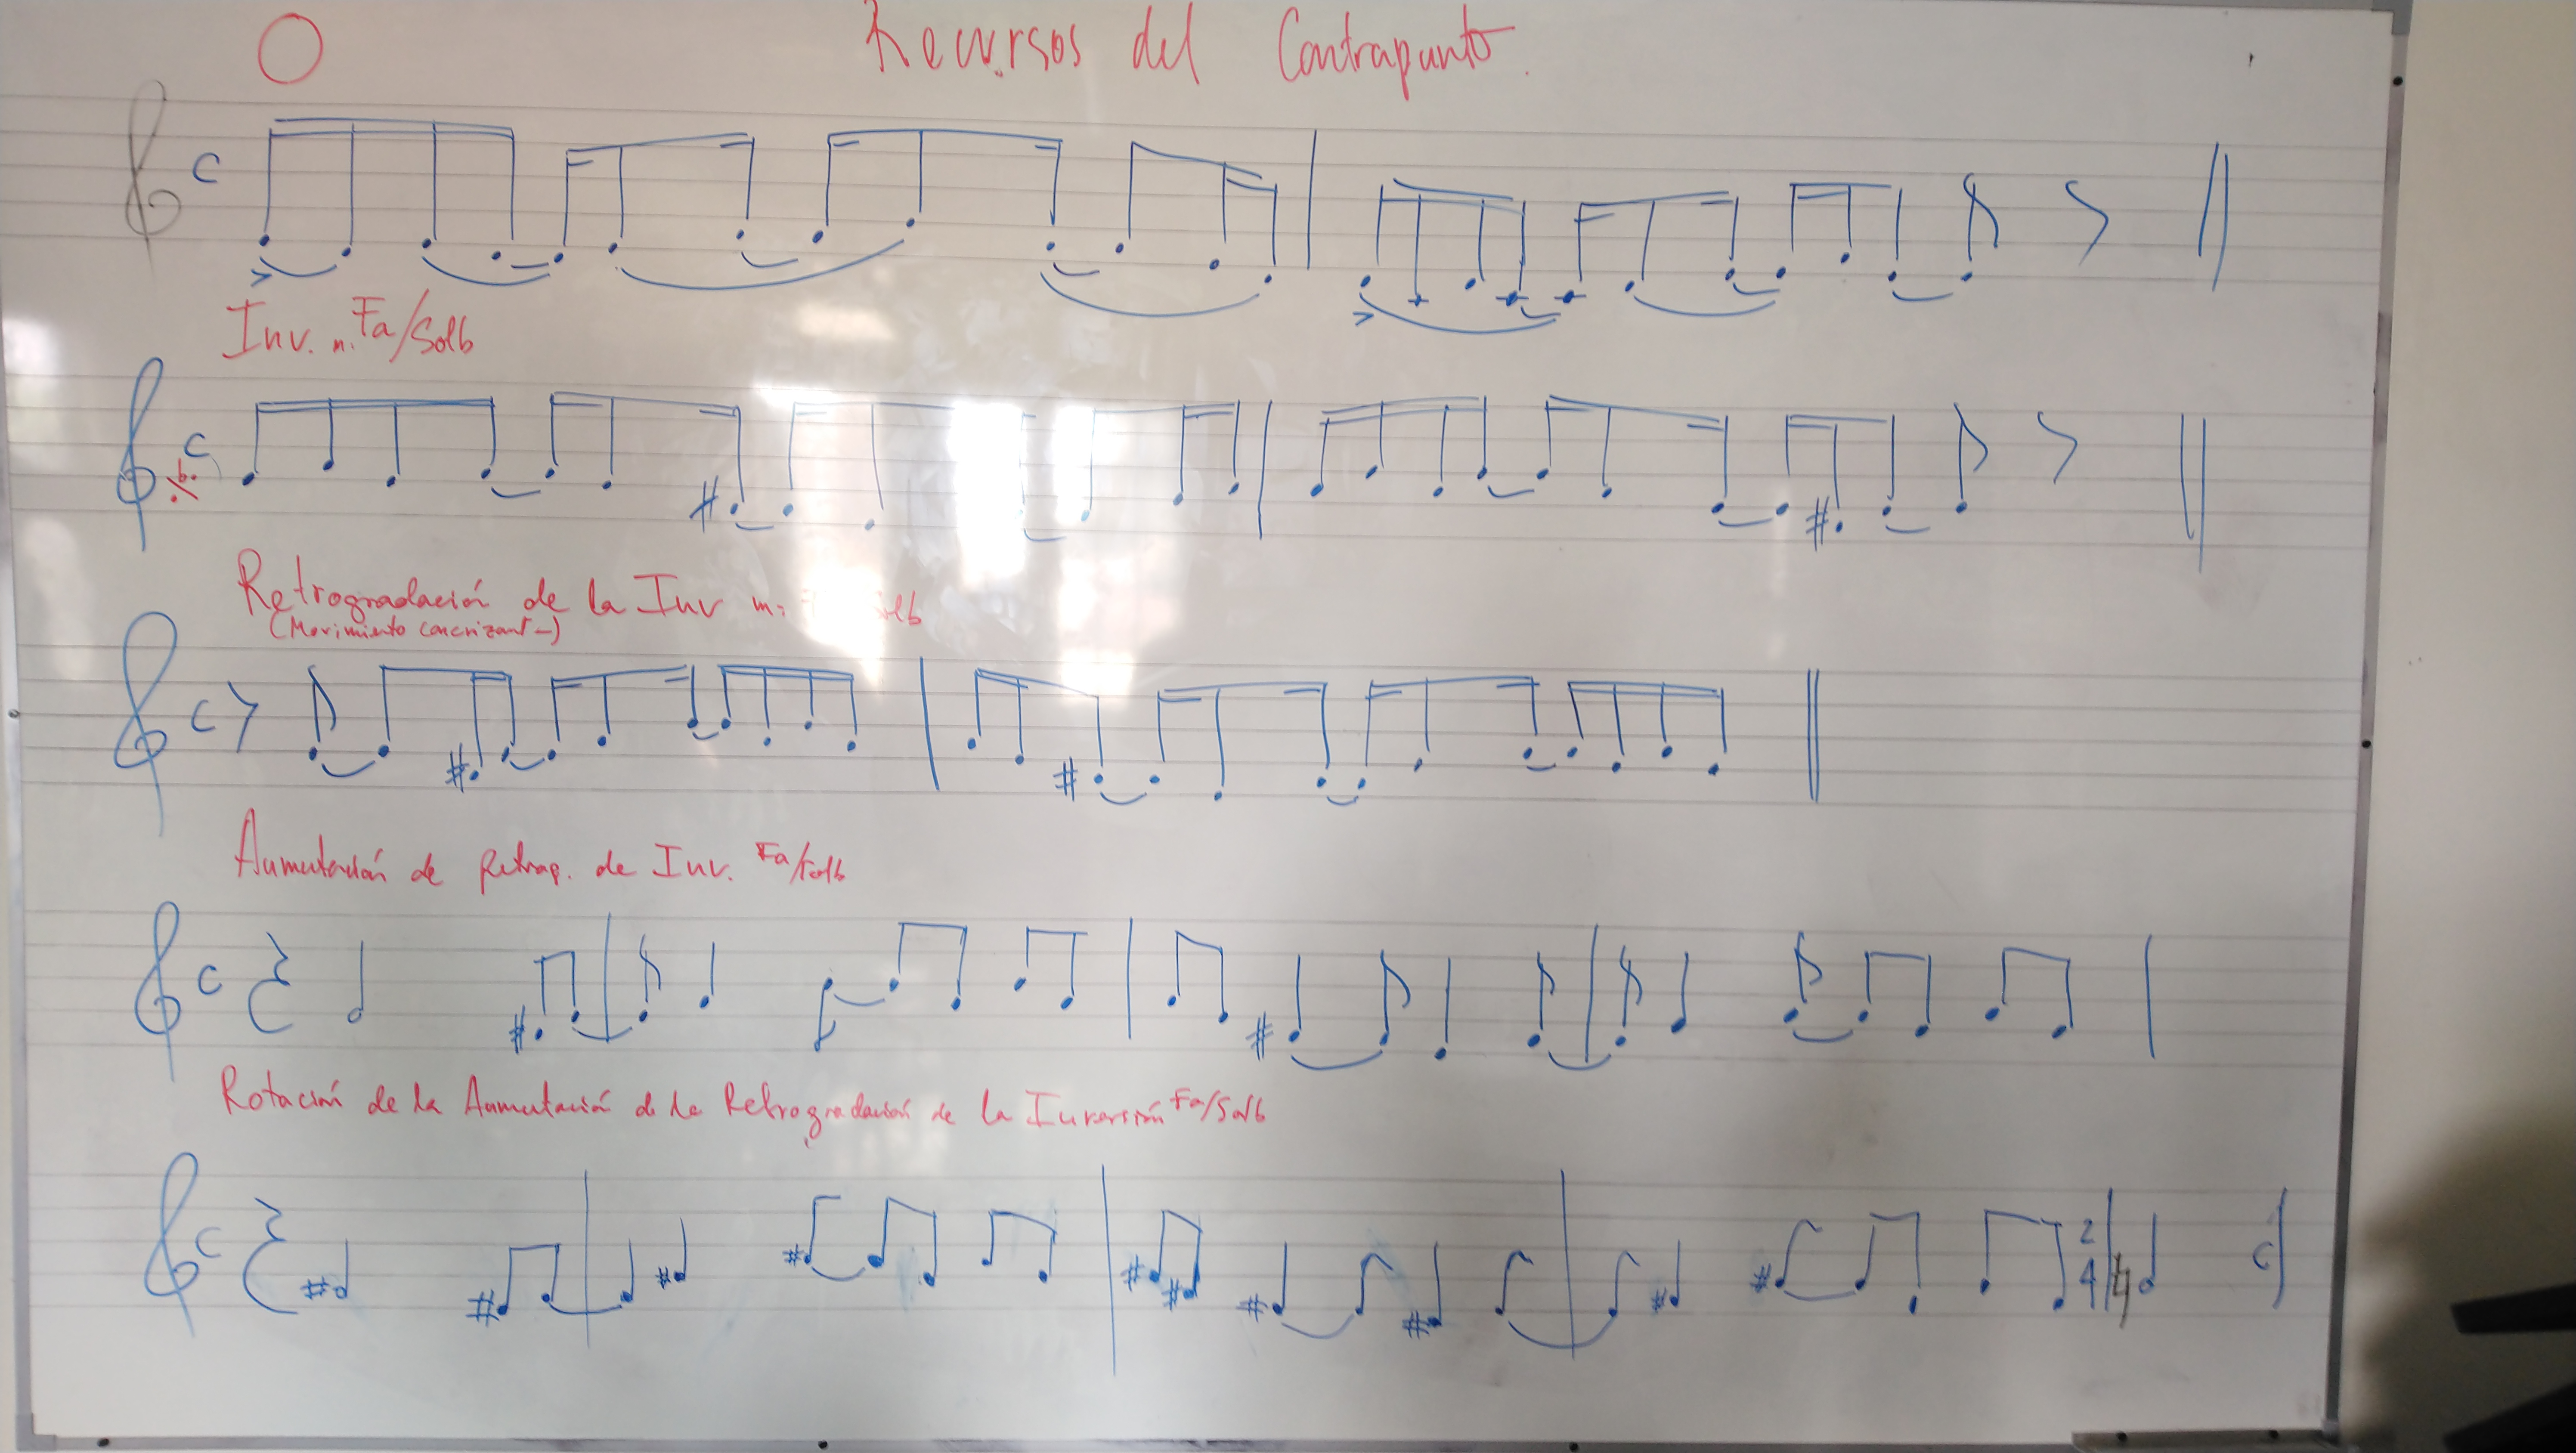 O
Recursos del Contrapunto.
C
Inv. m. Fa/Solb
C
Retrogradación de la Inv m:
(Movimiento cancrizant-)
C
Aumutación de Retrog. de Inv. Fa/Solb
C
Rotación de la Aumutación de la Retrogradación de la Inversión Fa/Solb
C 2 4 C